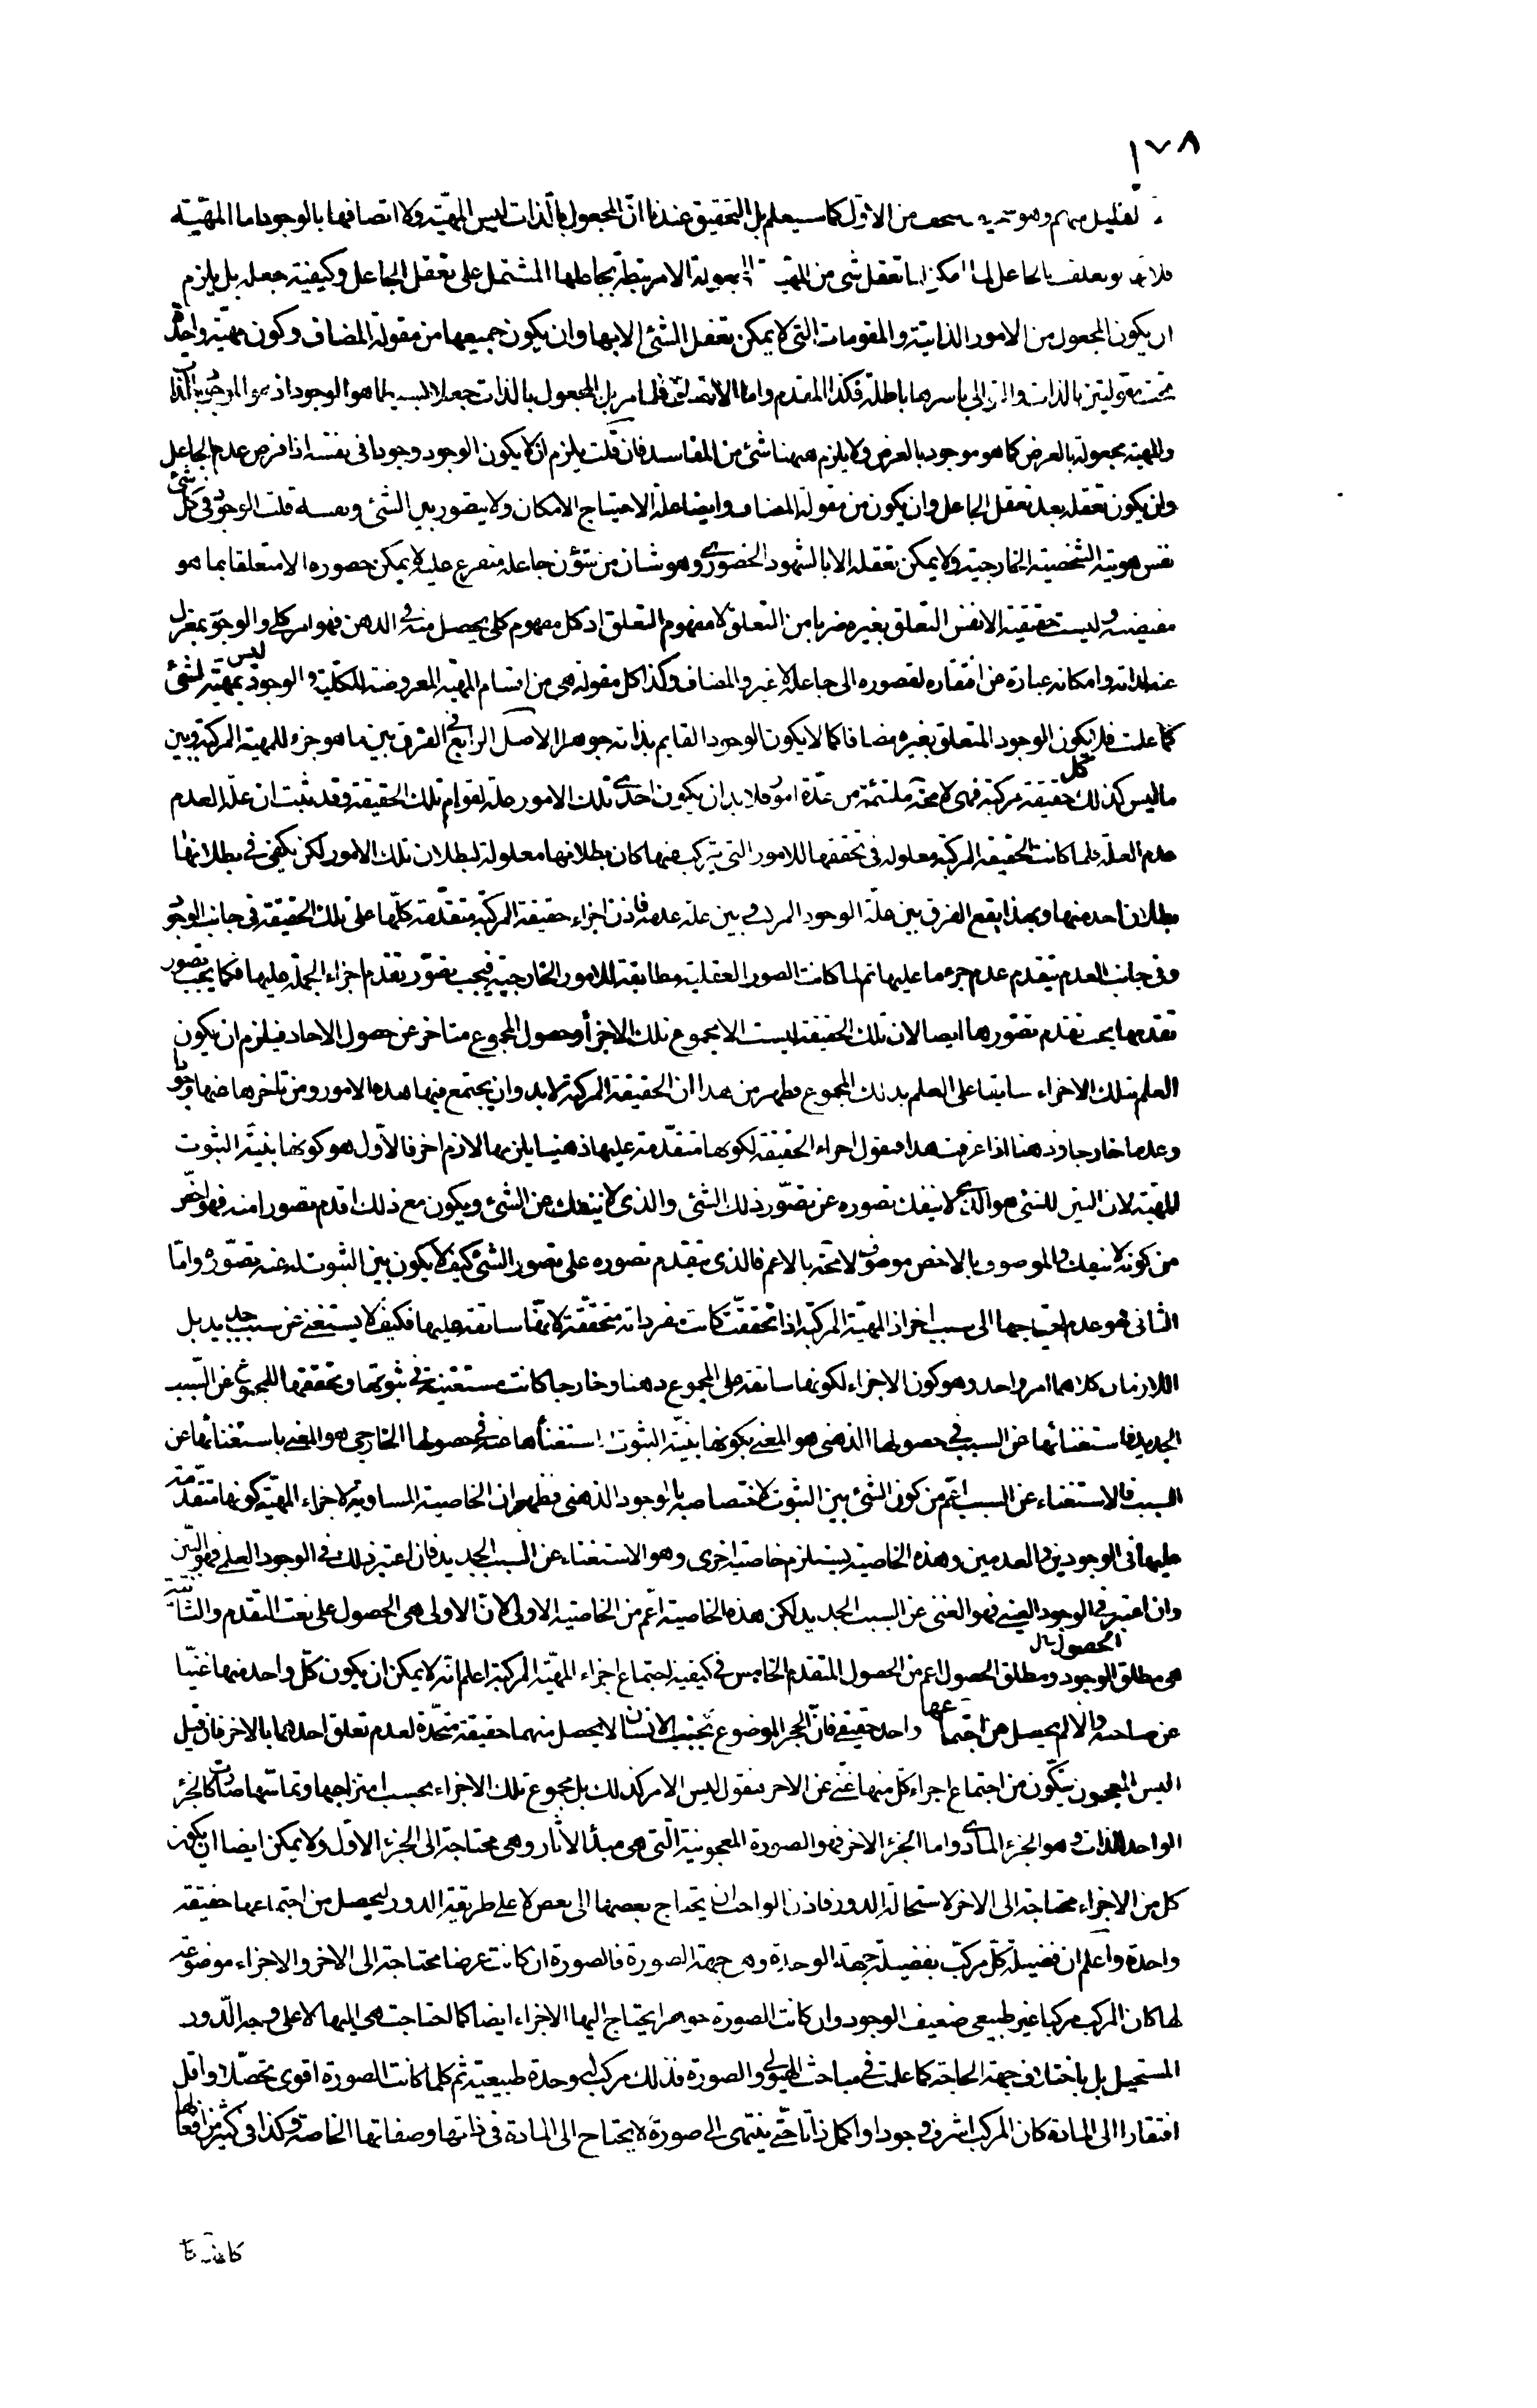 ١٧٨
لقليل وهو من الاول كما سيعلم بل التحقيق عندنا انّ المجعول بالذات ليس المهيّة ولا اتصافها بالوجود اما المهيّة
بالجاعل لما امكن لنا تعقل شئ من المهية المجعولة الا مرتبطة بجاعلها المشتمل على تعقل الجاعل وكيفية جعله بل يلزم
ان يكون المجعول من الامور الذاتية والمقومات التى لا يمكن تعقل الشئ الا بها وان يكون جميعها من مقولة المضاف وكون مهيّة واحدة
تحت مقولتين بالذات والتوالى باسرها باطلة فكذا المقدم واما الاتصاف فلما مر بل المجعول بالذات جعلا بسيطا هو الوجود اذ هو الموجود بالذات
والمهية مجعولة بالعرض كما هو موجود بالعرض ولا يلزم ههنا شئ من المفاسد فان قلت يلزم ان لا يكون الوجود وجودا فى نفسه اذا فرض عدم الجاعل
وان يكون تعقله بعد تعقل الجاعل وان يكون من مقولة المضاف وايضا علة الاحتياج الامكان ولا يتصور بين الشئ ونفسه قلت الوجود فى كل شئ
نفس هويته الشخصية الخارجية ولا يمكن تعقله الا بالشهود الحضورى وهو شان من شؤن جاعله متفرع عليه لا يمكن حضوره الا متعلقا بما هو
مفيضه وليست حقيقية الا نفس التعلق بغيره ضربا من التعلق لا مفهوم التعلق اذ كل مفهوم كلى يحصل منه فى الذهن فهو امر كلى والوجود بمعزل
عنه لذاته وامكانه عبارة عن افتقاره لقصوره الى جاعله لا غير والمضاف وكذا كل مقولة هى من اقسام المهية المعروضة للكلية والوجود ليس بمهية لشئ
كما علمت فلا يكون الوجود المتعلق بغيره مضافا كما لا يكون الوجود القايم بذاته جوهرا الاصل الرابع فى الفرق بين ما هو جزء للمهية المركبة وبين
ما ليس كذلك كل حقيقة مركبة فهى لا محة ملتئمة من عدّة امور فلا بد ان يكون احدى تلك الامور علة لقوام تلك الحقيقة وقد ثبت ان علة العدم
عدم العلة فلما كانت الحقيقة المركبة معلولة فى تحققها للامور التى يتركب منها كان بطلانها معلولة لبطلان تلك الامور لكن يكفى فى بطلانها
بطلان احد منها وبهذا يقع الفرق بين علة الوجود المركب وبين علة عدمه فاذن اجزاء حقيقة المركبة متقدّمة كلّها على تلك الحقيقة فى جانب الوجود
وفى جانب العدم يتقدم عدم جزء ما عليها ثم لما كانت الصور العقلية مطابقة للامور الخارجية فيجب تصوّر تقدم اجزاء الجملة عليها فكما يجب تصور
تقدمها يجب تقدم تصوّرها ايضا لان تلك الحقيقة ليست الا مجموع تلك الاجزأ وحصول المجموع متاخر عن حصول الاحاد فيلزم ان يكون
العلم بتلك الاجزاء سابقا على العلم بذلك المجموع فظهر من هذا ان الحقيقة المركبة لا بد وان يجتمع فيها هذه الامور ومن تاخرها عنها وجودا
وعدما خارجا وذهنا اذا عرفت هذا فنقول اجزاء الحقيقة لكونها متقدّمة عليها ذهنا يلزمها لازم اخر فالاوّل هو كونها بنيّة الثبوت
للمهيّة لان البين للشئ هو الذى لا ينفك تصوره عن تصوّر ذلك الشئ والذى لا ينفك عن الشئ ويكون مع ذلك اقدم تصورا منه فهو اخصّ
من كونه لا ينفك والموصوف بالاخص موصوف لا محة بالاعم فالذى يتقدم تصوره على تصور الشئ كيف لا يكون بين الثبوت له عند تصوّره وامّا
الثانى فهو عدم احتياجها الى سبب اخر اذ المهيّة المركبّة اذا تحققت كانت مفرداته متحققة لا محة سابقة عليها فكيف لا يستغنى عن سبب جديد بل
اللازمان كلاهما امر واحد وهو كون الاجزاء لكونها سابقة على المجموع ذهنا وخارجا كانت مستغنية فى ثبوتها وتحققها للمجموع عن السّبب
الجديد فاستغنائها عن السبب فى حصولها الذهنى هو المعنى بكونها بنيّة الثبوت استغناؤها عنه فى حصولها الخارجى هو المعنى باستغنائها عن
السبب فالاستغناء عن السبب اعّم من كون الشئ بين الثبوت لاختصاصه بالوجود الذهنى فظهر ان الخاصية المساوية لاجزاء المهيّة كونها متقدّمة
عليها فى الوجودين والعدمين وهذه الخاصية يستلزم خاصية اخرى وهو الاستغناء عن السبب الجديد فان اعتبر ذلك فى الوجود العلمى فهو البيّن
وان اعتبر فى الوجود العينى فهو الغنى عن السبب الجديد لكن هذه الخاصية اعّم من الخاصية الاولى لانّ الاولى هى الحصول على نعت التقدم والثانية
هى مطلق الوجود ومطلق الحصول اعم من الحصول المتقدم الخامس فى كيفية اجتماع اجزاء المهيّة المركبة اعلم انّه لا يمكن ان يكون كلّ واحد منها غنيّا
عن صاحبه والا لم يحصل من اجتماعها واحد حقيقى فانّ الحجر الموضوع بجنب الانسان لا يحصل منهما حقيقة متحّدة لعدم تعلق احدهما بالاخر فان قيل
اليس المعجون يتكّون من اجتماع اجزاء كلّ منها غنّى عن الاخر فنقول ليس الامر كذلك بل مجموع تلك الاجزاء بحسب امتزاجها وتماسّها صارت كالجزء
الواحد بالذات وهو الجزء المادى واما الجزء الاخر فهو الصورة المعجونية التّى هى مبدأ الاثار وهى محتاجة الى الجزء الاوّل ولا يمكن ايضا ان يكون
كل من الاجزاء محتاجة الى الاخر لاستحالة الدور فاذن الواجب ان يحتاج بعضها الى بعض لا على طريقة الدور ليحصل من اجتماعها حقيقة
واحدة واعلم ان فضيلة كلّ مركبّ بفضيلة جهة الوحدة وهى جهة الصورة فالصورة ان كانت عرضا محتاجة الى الاخر والاجزاء موضوعة
لها كان المركب مركبا غير طبيعى ضعيف الوجود وان كانت الصورة جوهرا يحتاج اليها الاجزاء ايضا كما احتاجت هى اليها لا على وجه الدّور
المستحيل بل باختلاف جهة الحاجة كما علمت فى مباحث الهيولى والصورة فذلك مركب له وحدة طبيعية ثم كلما كانت الصورة اقوى تحصّلا واقل
افتقارا الى المادة كان المركب اشرف وجودا واكمل ذاتا حتّى ينتهى الى صورة لا يحتاج الى المادة فى ذاتها وصفاتها الخاصة وكذا فى كثير من افعالها